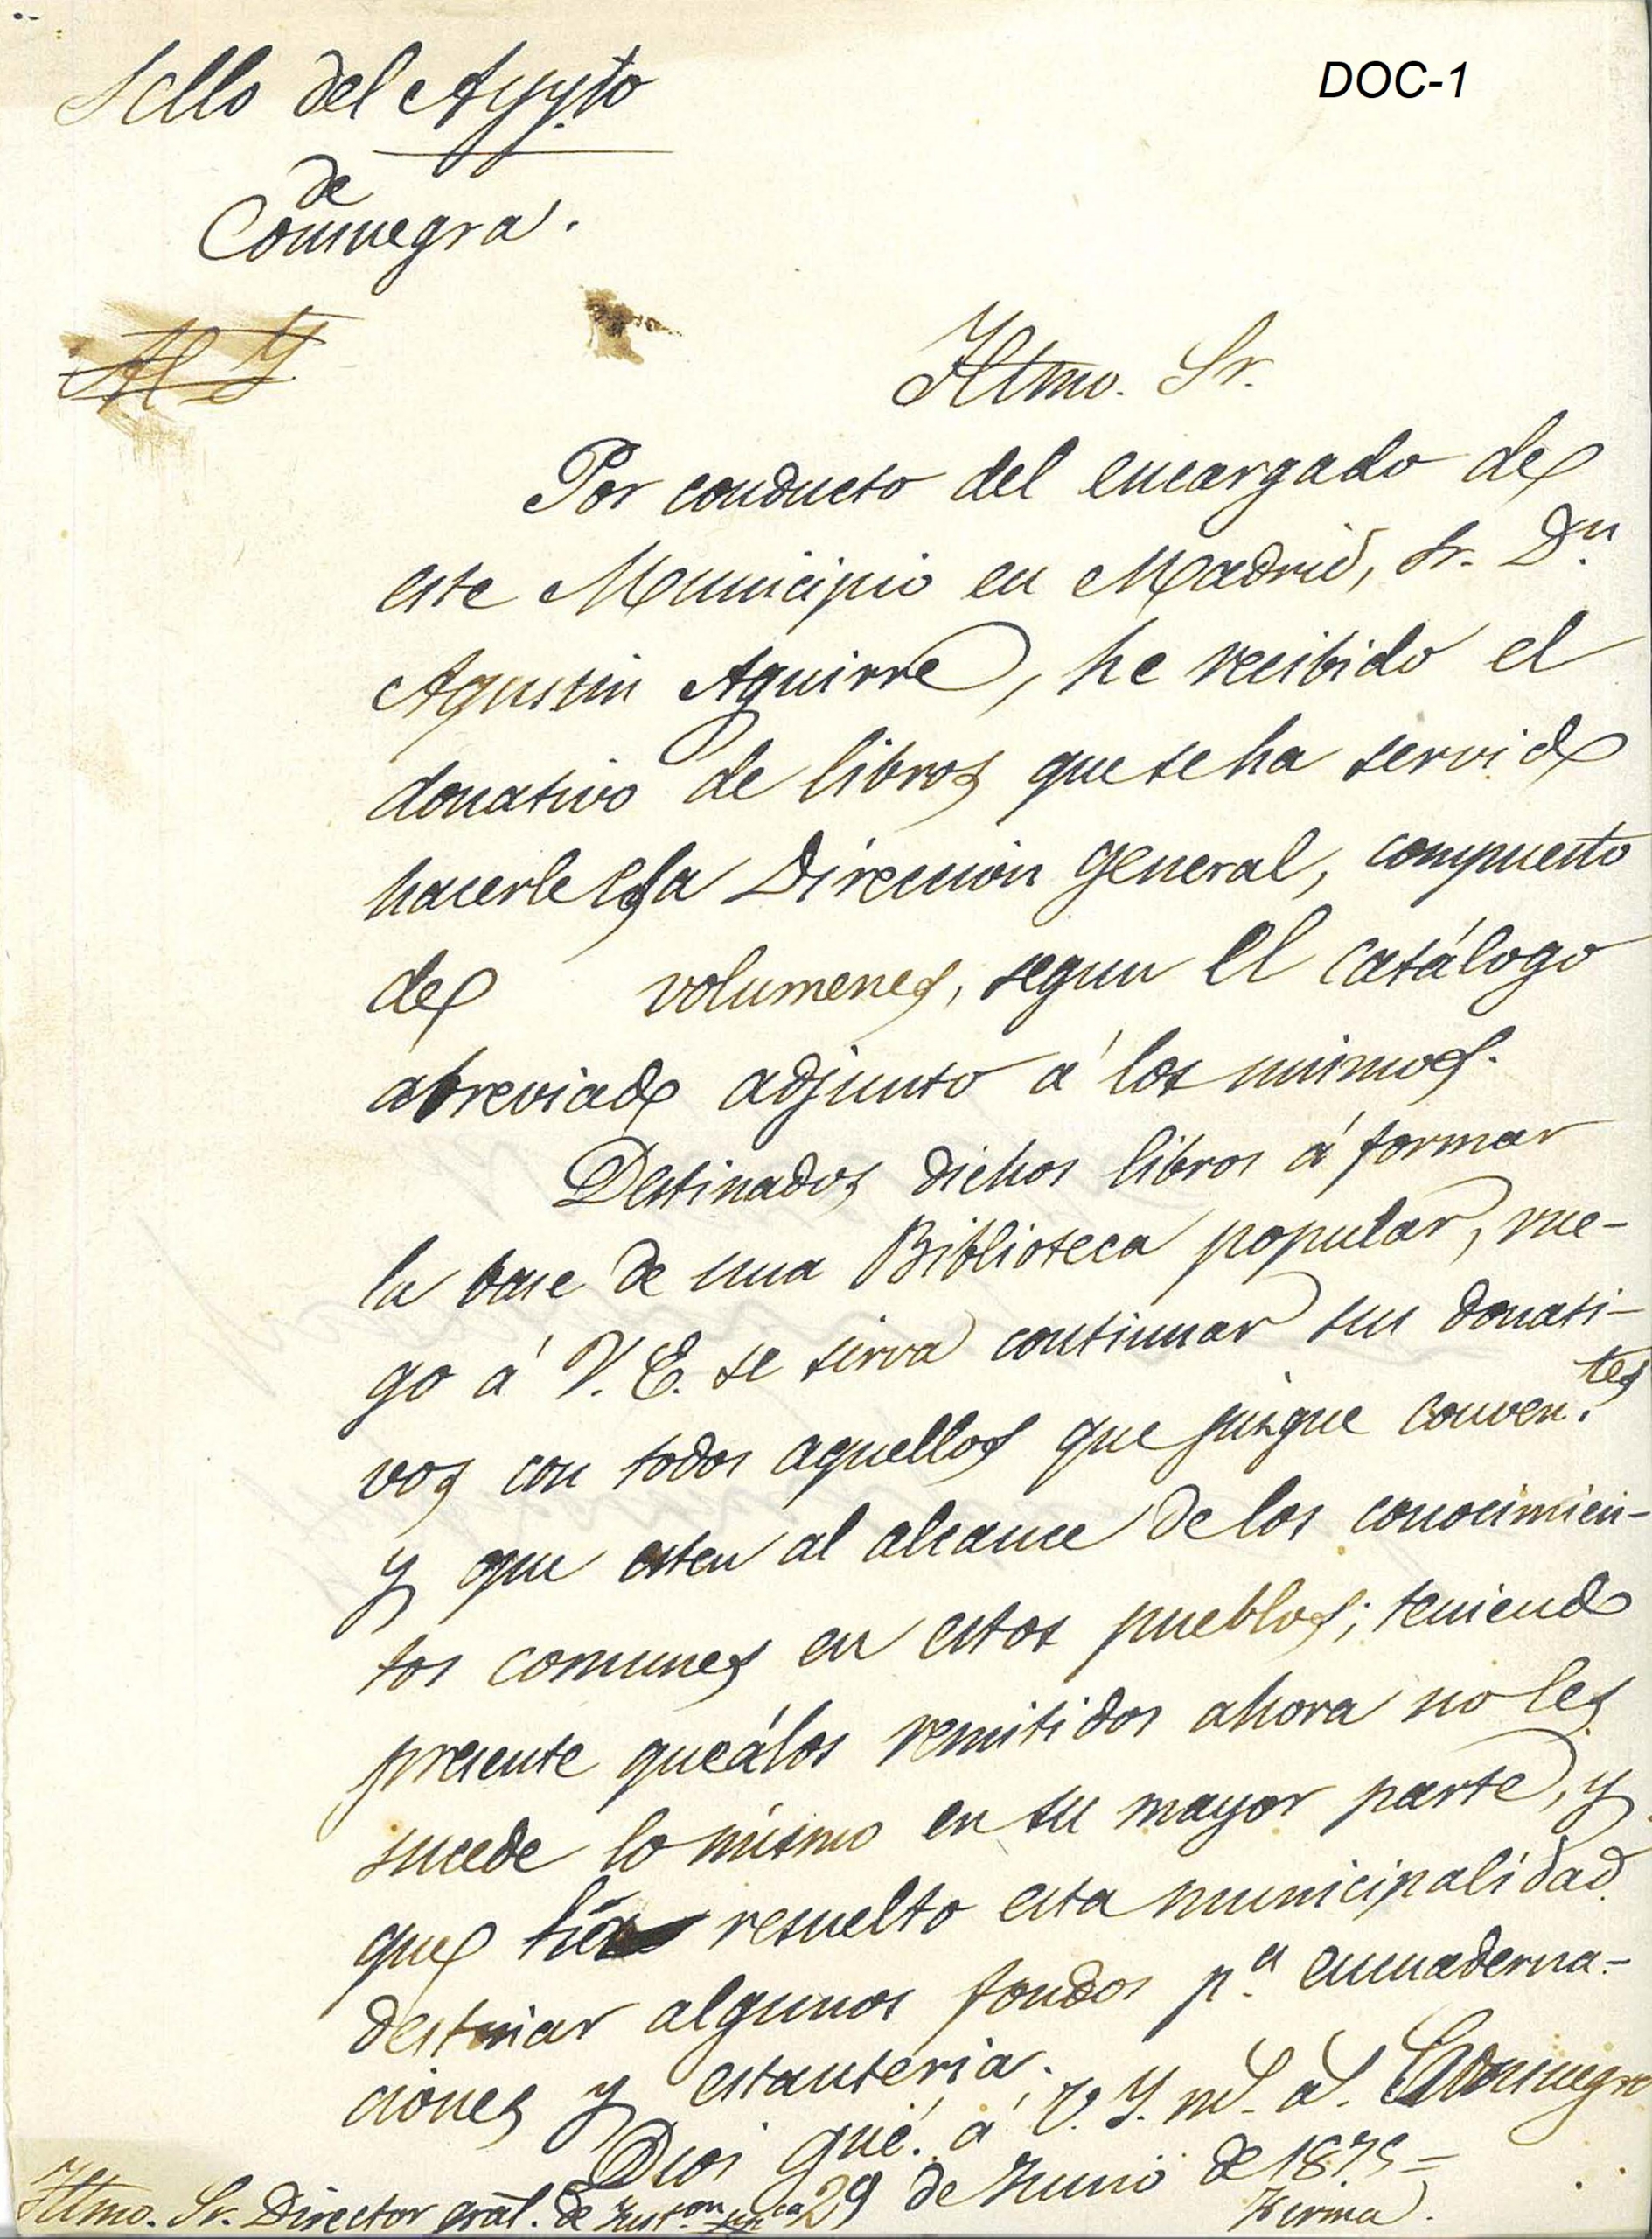 Sello del Ayyto
DOC-1
de
Consuegra.
Al Y
Iltmo. Sr.
Por conducto del encargado de
este Municipio en Madrid, Sr. Dn.
Agustin Aguirre, he recibido el
donativo de libros que se ha servido
hacerle esa Dirección general, compuesto
de volumenes, segun el catálogo
abreviado adjunto á los mismos.
Destinados dichos libros á formar
la base de una Biblioteca popular, rue-
go á V. E. se sirva continuar sus donati-
vos con todos aquellos que juzgue conven.tes
y que esten al alcance de los conocimien-
tos comunes en estos pueblos; teniendo
presente que á los remitidos ahora no les
sucede lo mismo en su mayor parte, y
que ha resuelto esta municipalidad
destinar algunos fondos p.a encuaderna-
ciones y estanteria.
Dios gue. á V. Y. ms. as. Consuegra
29 de Junio de 1875=
Firma.
Iltmo. Sr. Director gral. de Inst.on pp.ca